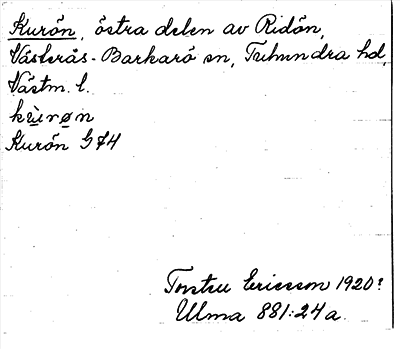 Kurön, östra delen av Ridön,
Västerås-Barkarö sn, Tuhundra hd,
Västm. l.
kùrøn
Kurön G74
Torsten Ericsson 1920?
Ulma 881:24a.